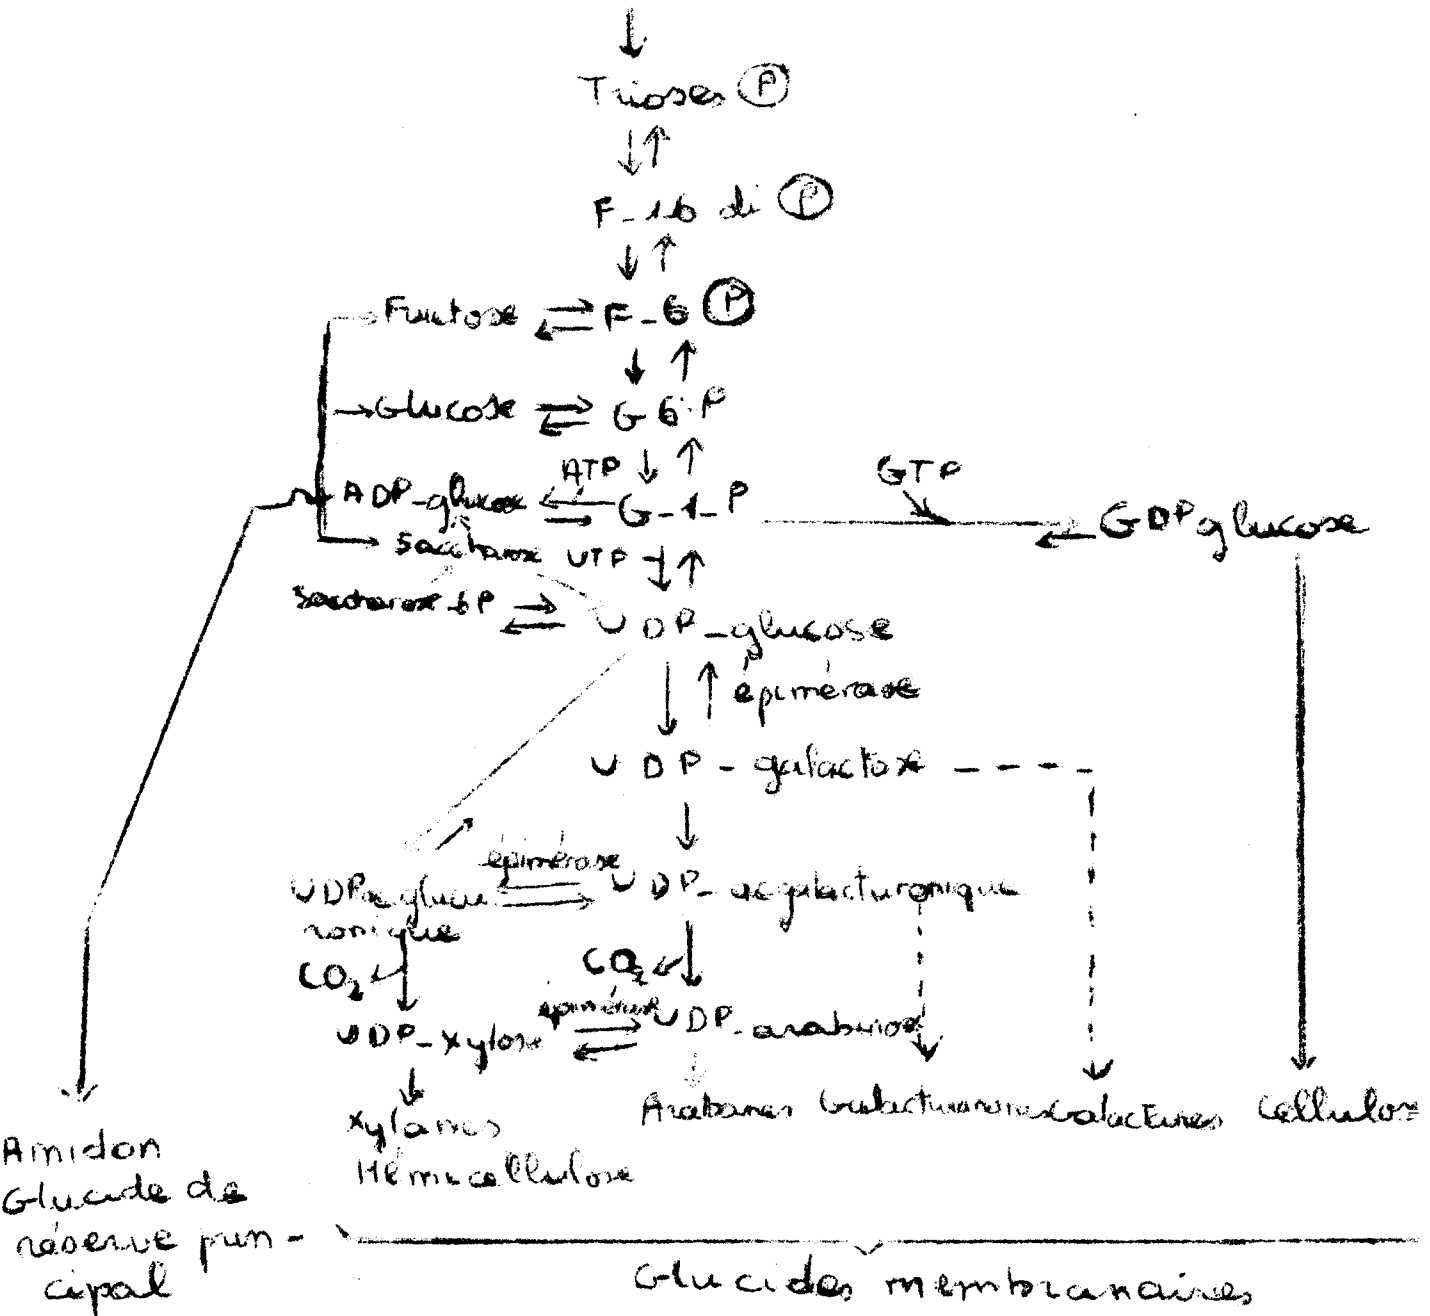 Trioses P
F-1.6 di P
Fructose F-6 P
Glucose G 6-P
ATP
GTP
ADP-glucose G-1-P
GDP glucose
Saccharose UTP
Saccharose 6P
UDP-glucose
épimérase
UDP-galactose
épimérase
UDP ac glucu UDP-ac galacturonique
ronique
CO2 CO2
épimérase
UDP-xylose UDP-arabinose
Arabanes Galacturonanes Galactanes Cellulose
Xylanes
Hémicellulose
Amidon
Glucide de
réserve prin-
cipal
Glucides membranaires